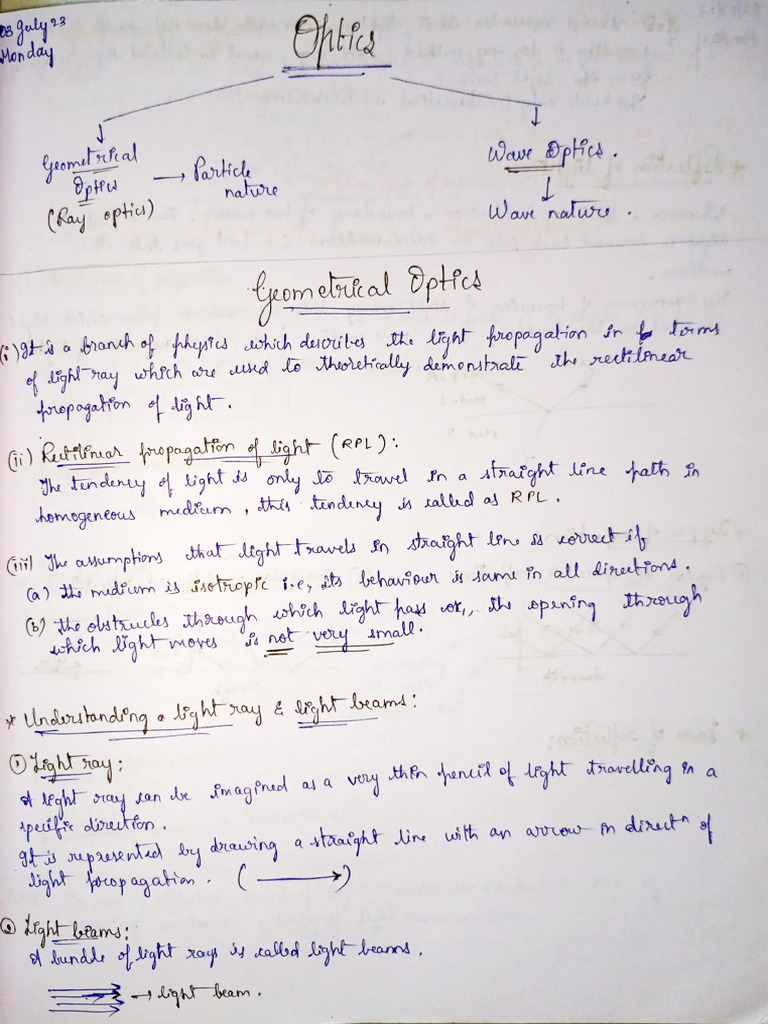 03 July 23
Monday
Optics
Geometrical
Optics
(Ray optics)
→ Particle
nature
Wave Optics.
Wave nature.
Geometrical Optics
(i) It is a branch of physics which describes the light propagation in terms
of light ray which are used to theoretically demonstrate the rectilinear
propagation of light.
(ii) Rectilinear propagation of light (RPL):
The tendency of light is only to travel in a straight line path in
homogeneous medium, this tendency is called as RPL.
(iii) The assumptions that light travels in straight line is correct if
(a) the medium is isotropic i.e, its behaviour is same in all directions.
(b) the obstrucles through which light pass or,, the opening through
which light moves is not very small.
* Understanding a light ray & light beams:
① Light ray:
A light ray can be imagined as a very thin pencil of light travelling in a
specific direction.
It is represented by drawing a straight line with an arrow in directⁿ of
light propagation. (→)
② Light beams:
A bundle of light rays is called light beams.
→ light beam.